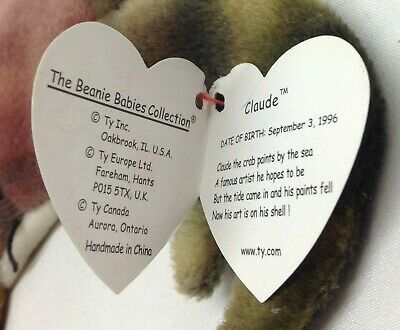 The Beanie Babies Collection®
© Ty Inc.
Oakbrook, IL. U.S.A.
© Ty Europe Ltd.
Fareham, Hants
PO15 5TX, U.K.
© Ty Canada
Aurora, Ontario
Handmade in China
Claude™
DATE OF BIRTH: September 3, 1996
Claude the crab paints by the sea
A famous artist he hopes to be
But the tide came in and his paints fell
Now his art is on his shell !
www.ty.com